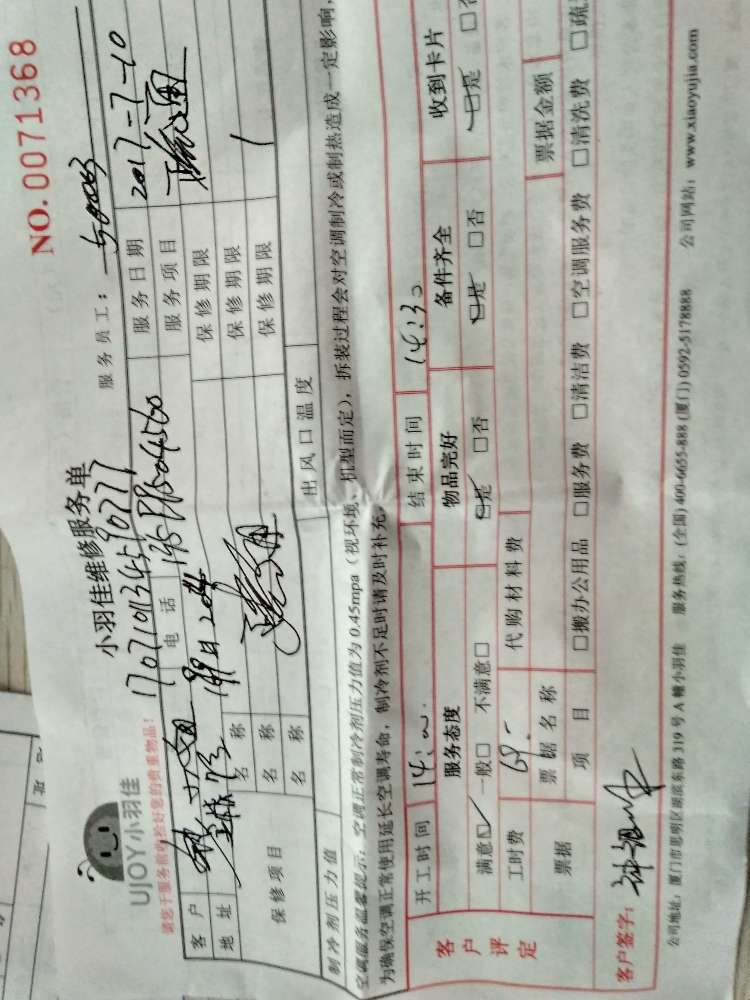 NO.0071368
UJOY小羽佳
小羽佳维修服务单
请您于服务前收捡好您的贵重物品!
服务员工:
客户
电话
服务日期 2017-7-10
地址
服务项目
保修项目
名称
保修期限
名称
保修期限
名称
保修期限
制冷剂压力值
出风口温度
空调服务温馨提示:空调正常制冷剂压力值为0.45mpa(视环境、机型而定),拆装过程会对空调制冷或制热造成一定影响,
为确保空调正常使用延长空调寿命,制冷剂不足时请及时补充。
客户评定
开工时间
结束时间 14:30
服务态度 物品完好 备件齐全 收到卡片
满意□ 一般□ 不满意□ □是 □否 □是 □否 □是
工时费 69.- 代购材料费
票据 票据名称 票据金额
项目 □搬办公用品 □服务费 □清洁费 □空调服务费 □清洗费 □疏
客户签字:
公司地址:厦门市思明区湖滨东路319号A幢小羽佳 服务热线:(全国)400-6655-888 (厦门)0592-5178888 公司网站:www.xiaoyujia.com